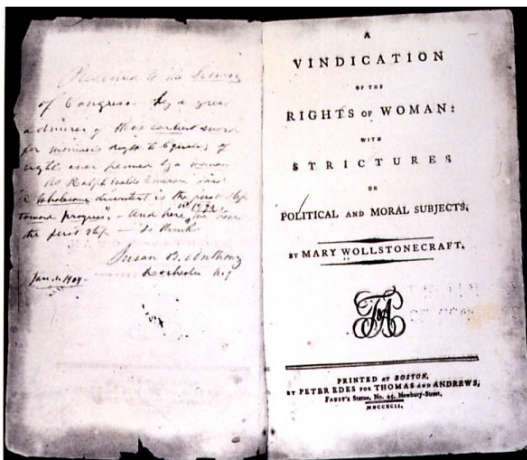 Presented to the Library
of Congress by a great
admirer of this earliest work
for woman's right to Equality of
rights ever penned by a woman
As Ralph Waldo Emerson said
"A wholesome discontent is the first step
toward progress" - And here in 1792 we have
the first step - So thinks
Susan B. Anthony
Rochester N.Y.
Jan. 1. 1904.
A
VINDICATION
OF THE
RIGHTS OF WOMAN:
WITH
STRICTURES
ON
POLITICAL AND MORAL SUBJECTS.
BY MARY WOLLSTONECRAFT.
T&A
PRINTED AT BOSTON,
BY PETER EDES FOR THOMAS AND ANDREWS,
FAUST'S Statue, No. 45, Newbury-Street,
MDCCXCII.